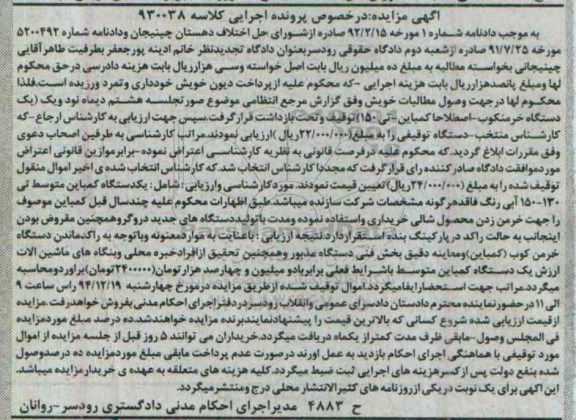 آگهی مزایده:درخصوص پرونده اجرایی کلاسه ۹۳۰۰۳۸
به موجب دادنامه شماره ۱ مورخه ۹۲/۲/۱۵ صادره ازشورای حل اختلاف دهستان چینیجان ودادنامه شماره ۵۲۰۰۴۹۲
مورخه ۹۱/۷/۲۵ صادره ازشعبه دوم دادگاه حقوقی رودسربعنوان دادگاه تجدیدنظر خانم ادینه پورجعفر بطرفیت طاهرآقایی
چینیجانی بخواسته مطالبه به مبلغ ده میلیون ریال بابت اصل خواسته وسی هزارریال بابت هزینه دادرسی درحق محکوم
لها ومبلغ پانصدهزارریال بابت هزینه اجرایی -که محکوم علیه ازپرداخت دیون خویش خودداری وتمرد ورزیده است.فلذا
محکوم لها درجهت وصول مطالبات خویش وفق گزارش مرجع انتظامی موضوع صورتجلسه هشتم دیماه نود ویک (یک
دستگاه خرمنکوب-اصطلاحا کمباین-تی ۱۵۰) توقیف وتحت بازداشت قرارگرفت.سپس جهت ارزیابی به کارشناس ارجاع-که
کارشناس منتخب-دستگاه توقیفی را به مبلغ(۲۲/۰۰۰/۰۰۰ریال )ارزیابی نمودند.مراتب کارشناسی به طرفین اصحاب دعوی
وفق مقررات ابلاغ گردید.که محکوم علیه درفرصت قانونی به نظریه کارشناسی اعتراض نموده-برابرموازین قانونی اعتراض
موردموافقت دادگاه صادرکننده رای قرارگرفت که مجدداکارشناس انتخاب شد.که کارشناس انتخاب شده ی اخیر اموال منقول
توقیف شده را به مبلغ (۲۴/۰۰۰/۰۰۰ریال)تعیین قیمت نمودند.موردکارشناسی وارزیابی:شامل: یکدستگاه کمباین متوسط تی
۱۵۰-۱۳۰ آبی رنگ فاقدهرگونه مشخصات شرکت سازنده میباشد.طبق اظهارات محکوم علیه چندسال قبل کمباین موصوف
را جهت خرمن زدن محصول شالی خریداری واستفاده نموده ومدت باتولیددستگاه های جدید دروگروهمچنین مقروض بودن
اینجانب به حالت راکد در پارکینگ بنده استقراردارد.نتیجه ارزیابی :باعنایت به مواردمعنونه وباتوجه به راکدماندن دستگاه
خرمن کوب (کمباین)ومعاینه دقیق بخش فنی دستگاه مذبور وهمچنین تحقیق ازافرادخبره محلی وبنگاه های ماشین الات
ارزش یک دستگاه کمباین متوسط باشرایط فعلی برابربادو میلیون و چهارصد هزارتومان(۲۴۰۰۰۰۰تومان)براوردومحاسبه
میگردد.مراتب جهت استحضارایفامیگردد.اموال توقیف شده ازطریق مزایده درمورخ چهارشنبه ۹۴/۱۲/۱۹ راس ساعت ۹
الی ۱۱ درحضورنماینده محترم دادستان دادسرای عمومی وانقلاب رودسردردفتراجرای احکام مدنی بفروش خواهدرفت.مزایده
ازقیمت ارزیابی شده شروع کسانی که بالاترین قیمت را پیشنهادنمایندبرنده مزایده خواهندشد.ده درصد مبلغ موردمزایده
فی المجلس وصول-مابقی ظرف مدت کمترازیکماه دریافت میگردد.خریداران می توانند ۵ روز قبل از جلسه مزایده از اموال
مورد توقیفی با هماهنگی اجرای احکام بازدید به عمل اورند درصورت عدم پرداخت مابقی مبلغ موردمزایده ده درصدوصول
شده بنفع دولت پس ازکسرهزینه های اجرایی ثبت ضبط میگردد.کلیه هزینه های متعلقه به عهده ی خریدار مزایده میباشد.
این آگهی برای یک نوبت دریکی ازروزنامه های کثیرالانتشار محلی درج ومنتشرمیگردد.
ح ۴۸۸۳ مدیراجرای احکام مدنی دادگستری رودسر-روانان